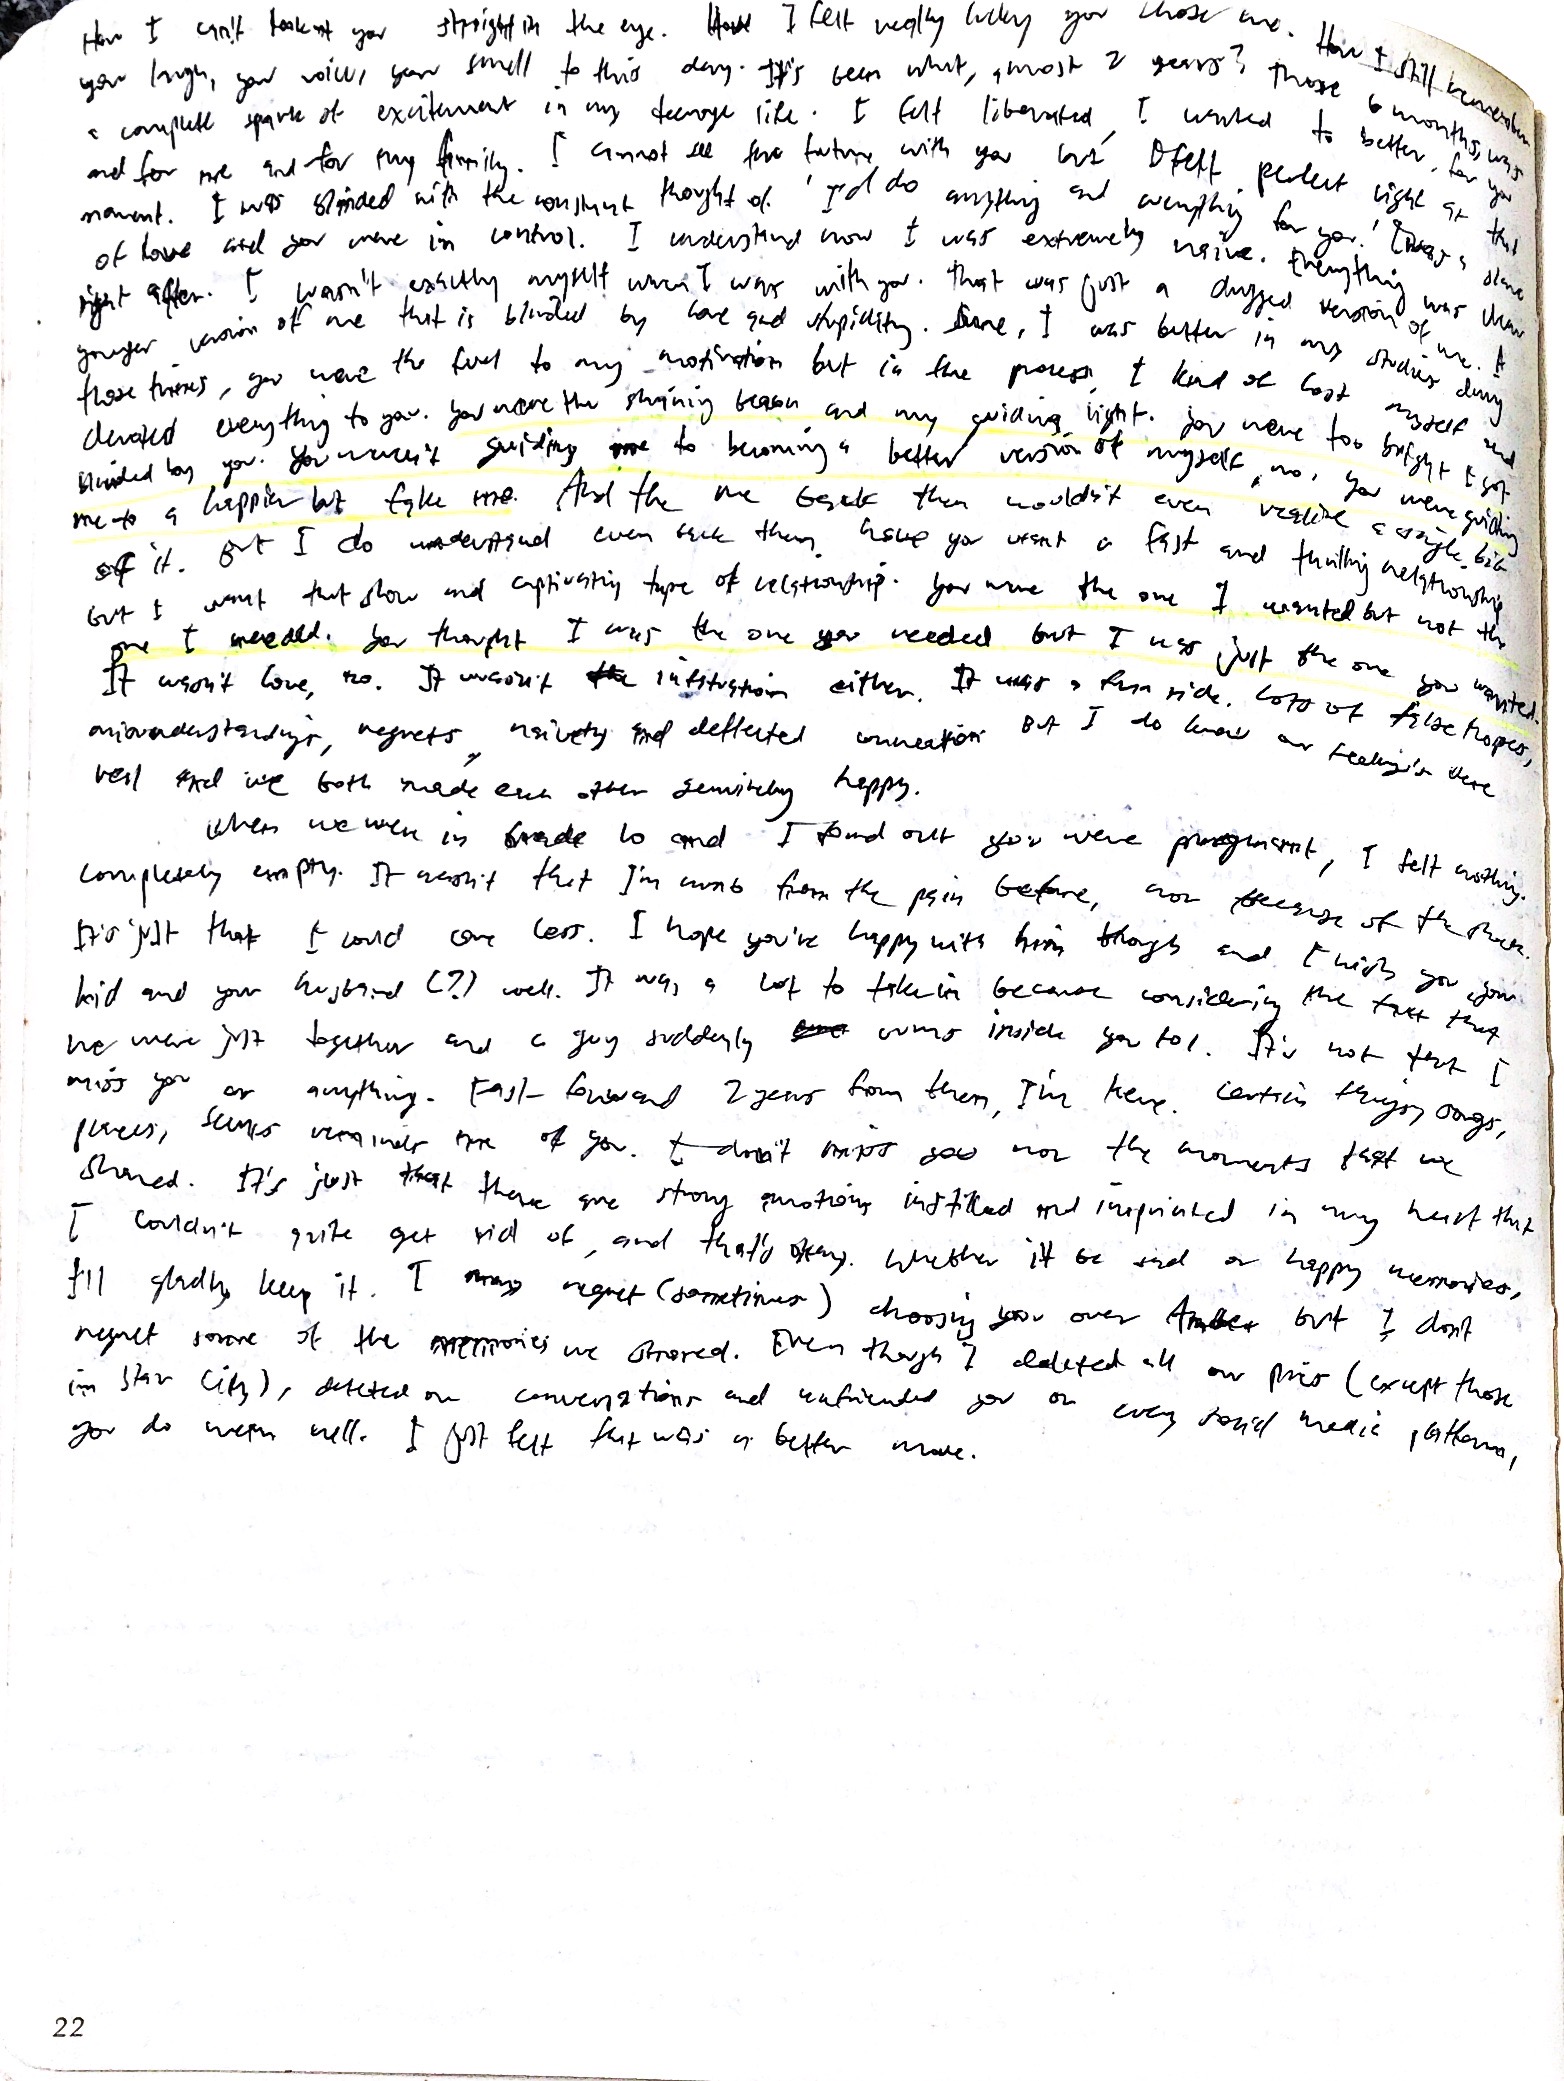 How I can't look at you straight in the eye. How I felt really lucky you chose me. How I still remember
your laugh, your voice, your smell to this day. It's been what, almost 2 years? Those 6 months, was
a complete spark of excitement in my teenage life. I felt liberated, I wanted to better, for you
and for me and for my family. I cannot see the future with you but I felt perfect right at that
moment. I was blinded with the constant thought of 'I'd do anything and everything for you.' I was a slave
of love and you were in control. I understand now I was extremely naive. Everything was clear
right after. I wasn't exactly myself when I was with you. That was just a drugged version of me. A
younger version of me that is blinded by love and stupidity. Sure, I was better in my studies during
those times, you were the fuel to my motivation but in the process, I kind of lost myself and
devoted everything to you. You were the shining beacon and my guiding light. You were too bright I got
blinded by you. You weren't guiding me to becoming a better version of myself, no, you were guiding
me to a happier but fake me. And the me back then wouldn't even realize a single bit
of it. But I do understand even back then, you want a fast and thrilling relationship
but I want that slow and captivating type of relationship. You were the one I wanted but not the
one I needed. You thought I was the one you needed but I was just the one you wanted.
It wasn't love, no. It wasn't infatuation either. It was a fun ride. Lots of false hopes,
misunderstandings, regrets, naivety and deflected connection but I do know our feelings were
real and we both made each other genuinely happy.
When we were in Grade 10 and I found out you were pregnant, I felt nothing.
Completely empty. It wasn't that I'm numb from the pain before, nor because of the shock.
It's just that I could care less. I hope you're happy with him though and I wish you your
kid and your husband (?) well. It was a lot to take in because considering the fact that
we were just together and a guy suddenly cums inside you lol. It's not that I
miss you or anything. Fast-forward 2 years from then, I'm here. Certain things, songs,
places, scents reminds me of you. I don't miss you nor the moments that we
shared. It's just that there are strong emotions instilled and imprinted in my heart that
I couldn't quite get rid of, and that's okay. Whether it be sad or happy memories,
I'll gladly keep it. I may regret (sometimes) choosing you over Amber but I don't
regret some of the memories we shared. Even though I deleted all our pics (except those
in Star City), deleted our conversations and unfriended you on every social media platform,
you do mean well. I just felt that was a better move.
22